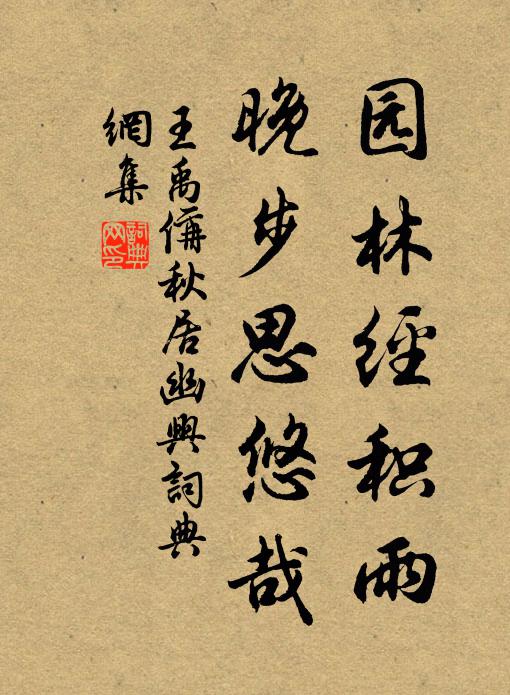 园林經积雨
晚步思悠哉
王禹偁秋居幽興詞典
網集
詞典網印